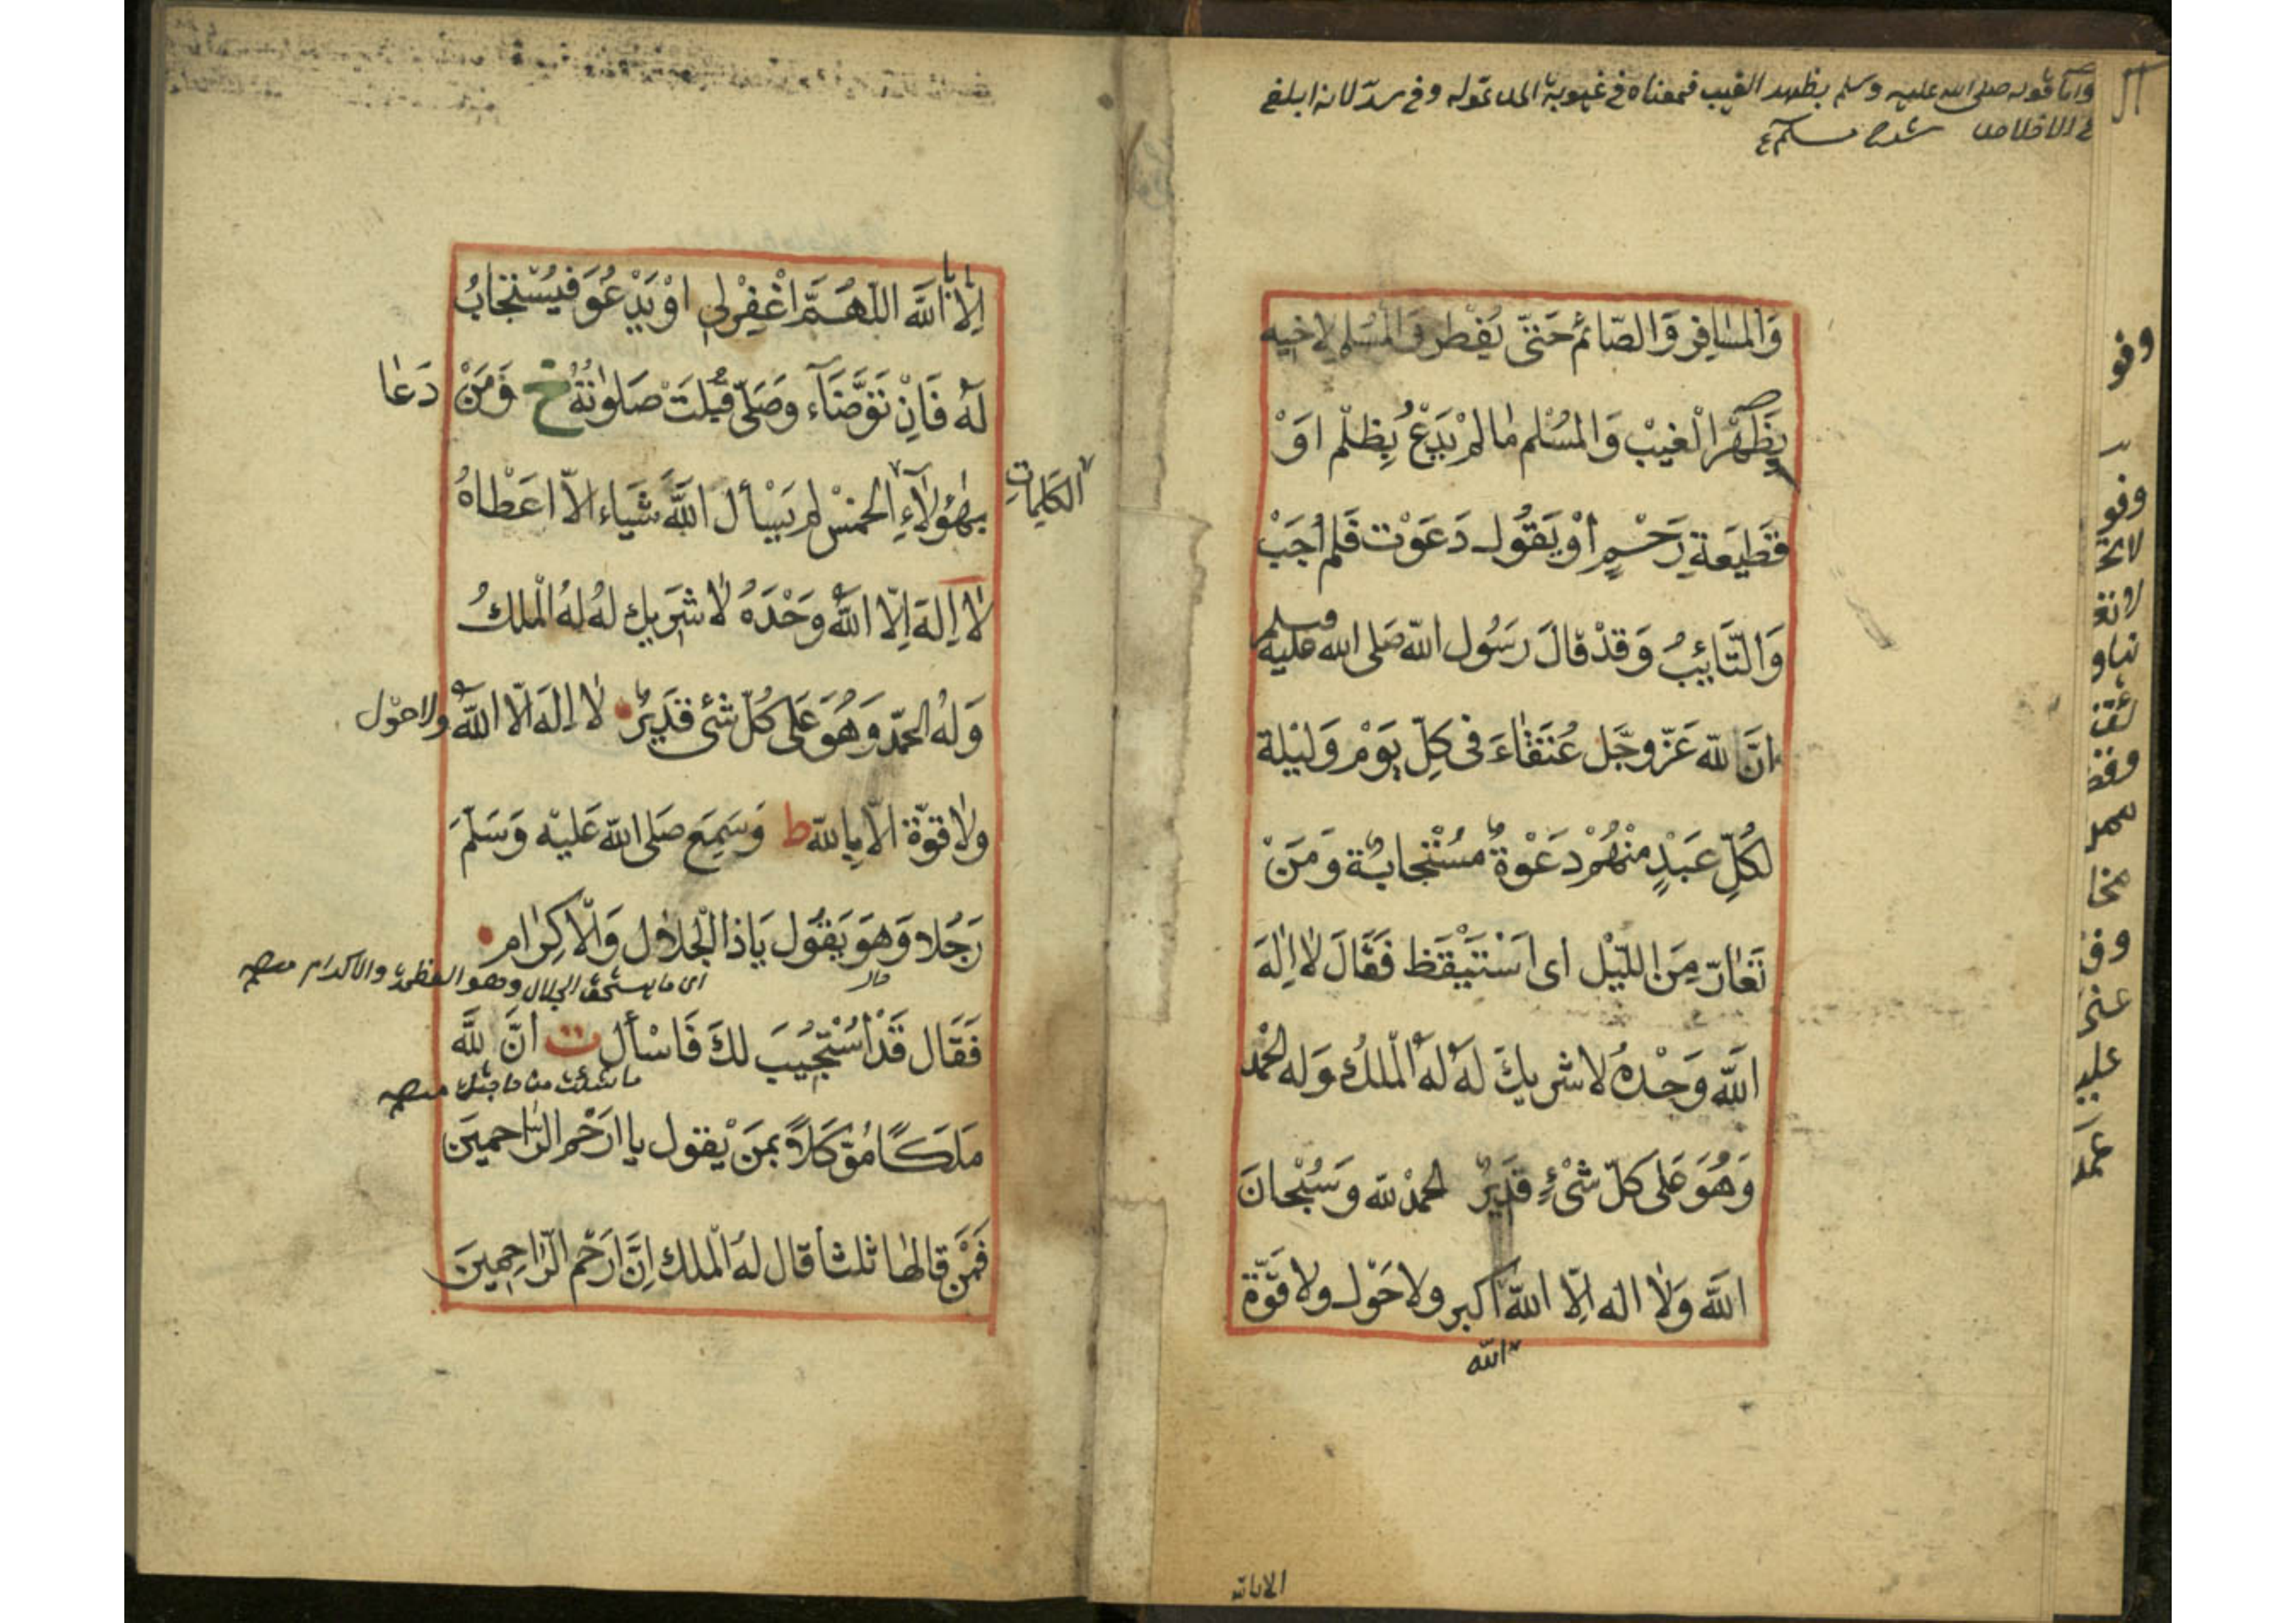 وأما قوله صلى الله عليه وسلم بظهر الغيب فمعناه في غيبوبة المدعو له وفي سر لانه ابلغ
في الاخلاص شرح مسلم
وَالمسَافِرِ وَالصّائم حَتىّ يُفِطر وَالمُسْلم لِاخيه
بِظَهْرِ الْغيبْ وَالمُسْلم مٰا لمْ يَدْعُ بِظلْم اوَْ
قَطيعَةِ رَحْمٍ أوْ يَقُول دَعَوْت فَلم اُجَبْ
وَالتّائبُ وَقدْ قالَ رَسُول اللّه صَلى الله عليه وسلم
انَّ للّه عَزّ وجَّل عُتَقٰاءَ فى كلِّ يوَْم وَليْلة
لكُلِّ عَبْدٍ منْهُمْ دَعْوةٌ مُسْتْجابةٌ وَمَنْ
تَعٰارّ مِنَ اللّيْل اى اسَْتَيْقَظ فَقَالَ لٰا اِلٰهَ
اللّه وَحْدهُ لا شريكَ لهَُ لهَُ الْملكُ وَله الحمْد
وَهُوَ عَلى كلّ شَىْءٍ قدَيرٌ الحمدْ للّه وَسُبْحانَ
اللّه وَلٰا اله اِلّا اللّه اكبر ولا حَوْل ولا قوّة
اللّه
الا بالله
اِلّا بِاللّه اللّهُمَّ اغْفِرْلى اوْ يَدْعُوَ فيُسْتَجَابُ
لهُ فَاِنْ تَوَضَّاءَ وَصَلىّ قُبِلتْ صَلوٰتُهُ خ وَمَنْ دَعٰا
بِهٰؤلٰاءِ الكلِماتِ الخمْسْ لم يَسْأل اللّهَ شَيْاء الاّ اعَْطاهُ
لٰا اِلهَ اِلّا اللّهُ وَحْدَهُ لٰا شَريك لهُ لهُ الْملكُ
وَلهُ الحمْدُ وَهُوَ عَلى كُلّ شئ قدَيرٌ لٰا الهَ الّا اللّهُ ولا حوْل
ولٰا قوّة الاّ بِاللّه ط وَسَمِعَ صَلى اللّه عَليْه وَسَلّمَ
رَجُلا وَهوَ يَقُول يَاذا الْجلاٰل وَالْاكرٰام
اى ما يستحق الجلال وهو العظمة والاكرام منه
فَقَال قَدْ اسُْتجيبَ لكَ فَاسْأل ت انَّ للّه
ما شئت من حاجتك منه
مَلَكًا مُوَكَلاً بمَنْ يَقول يا ارَْحَم الرّاحمينَ
فَمَنْ قالهٰا ثلثاً قال لهُ الْملك اِنَّ ارَْحَم الرّاحِمينَ